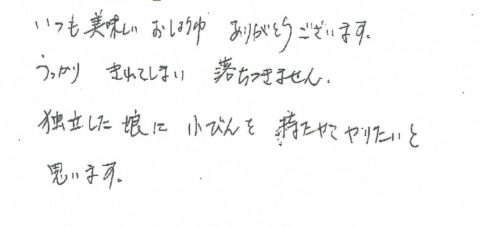 いつも美味しい おしょうゆ ありがとうございます。
うっかり きれてしまい 落ちつきません.
独立した娘に 小びんを 持たせてやりたいと
思います。